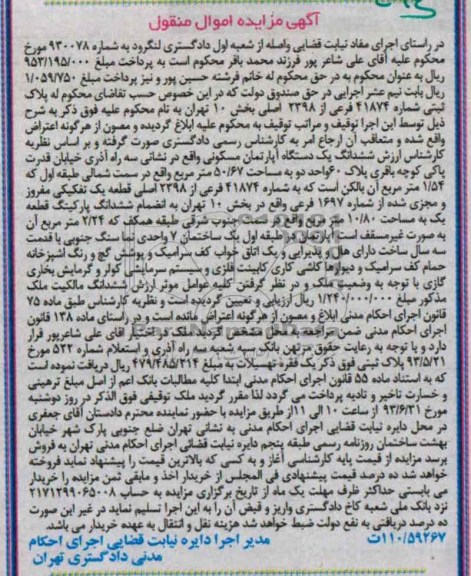 آگهی مزایده اموال منقول
در راستای اجرای مفاد نیابت قضایی واصله از شعبه اول دادگستری لنگرود به شماره ۹۳۰۰۷۸ مورخ
محکوم علیه آقای علی شاعر پور فرزند محمد باقر محکوم است به پرداخت مبلغ ۹۵۳/۱۹۵/۰۰۰
ریال به عنوان محکوم به در حق محکوم له خانم فرشته حسین پور و نیز پرداخت مبلغ ۱/۰۵۹/۷۵۰
ریال بابت نیم عشر اجرایی در حق صندوق دولت که در این خصوص حسب تقاضای محکوم له پلاک
ثبتی شماره ۴۱۸۷۴ فرعی از ۲۳۹۸ اصلی بخش ۱۰ تهران به نام محکوم علیه فوق ذکر به شرح
ذیل توسط این اجرا توقیف و مراتب توقیف به محکوم علیه ابلاغ گردیده و مصون از هرگونه اعتراض
واقع شده و متعاقب آن ارجاع امر به کارشناس رسمی دادگستری صورت گرفته و بر اساس نظریه
کارشناس ارزش ششدانگ یک دستگاه آپارتمان مسکونی واقع در نشانی سه راه آذری خیابان قدرت
پاکی کوچه باقری پلاک ۶۰ واحد دو به مساحت ۵۰/۶۷ متر مربع واقع در سمت شمالی طبقه اول که
۱/۵۴ متر مربع آن بالکن است که به شماره ۴۱۸۷۴ فرعی از ۲۳۹۸ اصلی قطعه یک تفکیکی مفروز
و مجزی شده از شماره ۱۶۹۷ فرعی واقع در بخش ۱۰ تهران به انضمام ششدانگ پارکینگ قطعه
یک به مساحت ۱۰/۸۰ متر مربع واقع در سمت جنوب شرقی طبقه همکف که ۲/۲۴ متر مربع آن
به صورت غیرمسقف است آپارتمان در طبقه اول یک ساختمان ۷ واحدی نما سنگ جنوبی با قدمت
سه سال ساخت دارای هال و پذیرایی و یک اتاق خواب کف سرامیک و پوشش گچ و رنگ آشپزخانه
حمام کف سرامیک و دیوارها کاشی کاری کابینت فلزی و سیستم سرمایشی کولر و گرمایش بخاری
گازی با توجه به وضعیت ملک و در نظر گرفتن کلیه عوامل موثر ارزش ششدانگ مالکیت ملک
مذکور مبلغ ۱/۲۴۰/۰۰۰/۰۰۰ ریال ارزیابی و تعیین گردیده است و نظریه کارشناس طبق ماده ۷۵
قانون اجرای احکام مدنی ابلاغ و مصون از هرگونه اعتراض مانده است و در راستای ماده ۱۳۸ قانون
اجرای احکام مدنی ضمن مراجعه به محل مشخص گردید ملک در اختیار آقای علی شاعرپور قرار
دارد و با توجه به رعایت حقوق مرتهن بانک سپه شعبه سه راه آذری و استعلام شماره ۵۳۲ مورخ
۹۳/۵/۲۱ پلاک ثبتی فوق ذکر یک فقره تسهیلات به مبلغ ۴۷۹/۴۸۵/۳۱۴ ریال دریافت نموده است
که به استناد ماده ۵۵ قانون اجرای احکام مدنی ابتدا کلیه مطالبات بانک اعم از اصل مبلغ ترهینی
و خسارت تاخیر و تادیه پرداخت می گردد لذا مقرر گردید ملک توقیفی فوق الذکر در روز دوشنبه
مورخ ۹۳/۶/۳۱ از ساعت ۱۰ الی ۱۱ از طریق مزایده با حضور نماینده محترم دادستان آقای جعفری
در محل دایره نیابت قضایی اجرای احکام مدنی به نشانی تهران ضلع جنوبی پارک شهر خیابان
بهشت ساختمان روزنامه رسمی طبقه پنجم دایره نیابت قضائی اجرای احکام مدنی تهران به فروش
برسد مزایده از قیمت پایه کارشناسی آغاز و به کسی که بالاترین قیمت را پیشنهاد نماید فروخته
خواهد شد ده درصد قیمت پیشنهادی فی المجلس از خریدار اخذ و مابقی ثمن مزایده را خریدار
می بایستی حداکثر ظرف مهلت یک ماه از تاریخ برگزاری مزایده به حساب ۲۱۷۱۲۹۹۰۶۵۰۰۸
نزد بانک ملی شعبه کاخ دادگستری واریز و قبض آن را به این اجرا تسلیم نماید در غیر این صورت
ده درصد دریافتی به نفع دولت ضبط خواهد شد هزینه نقل و انتقال به عهده خریدار می باشد.
۱۱۰/۵۹۲۶۷ت
مدیر اجرا دایره نیابت قضایی اجرای احکام
مدنی دادگستری تهران